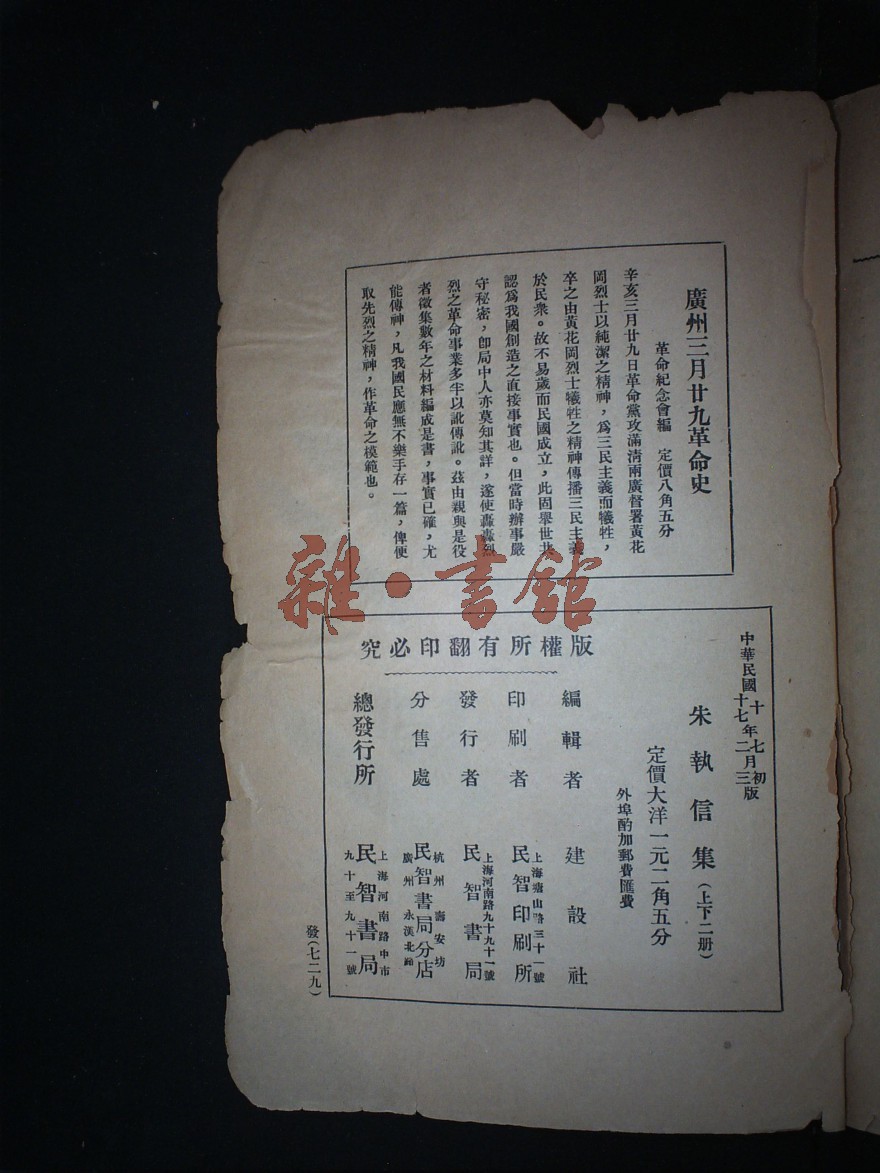 廣州三月廿九革命史
革命紀念會編　定價八角五分
辛亥三月廿九日革命黨攻滿清兩廣督署黃花
岡烈士以純潔之精神，爲三民主義而犧牲，
卒之由黃花岡烈士犧牲之精神傳播三民主義
於民衆。故不易歲而民國成立，此固舉世共
認爲我國創造之直接事實也。但當時辦事嚴
守秘密，卽局中人亦莫知其詳，遂使轟轟烈
烈之革命事業多半以訛傳訛。茲由親與是役
者徵集數年之材料編成是書，事實已確，尤
能傳神，凡我國民應無不樂手存一篇，俾便
取先烈之精神，作革命之模範也。
雜·書館
中華民國
十年七月初版
十七年二月三版
朱執信集（上下二册）
定價大洋一元二角五分
外埠酌加郵費匯費
版權所有翻印必究
編輯者　建設社
印刷者　上海塘山路三十一號
民智印刷所
發行者　上海河南路九十九十一號
民智書局
分售處　杭州　壽安坊
民智書局分店
廣州　永漢北路
總發行所　上海河南路中市
民智書局
九十至九十一號
發（七二九）